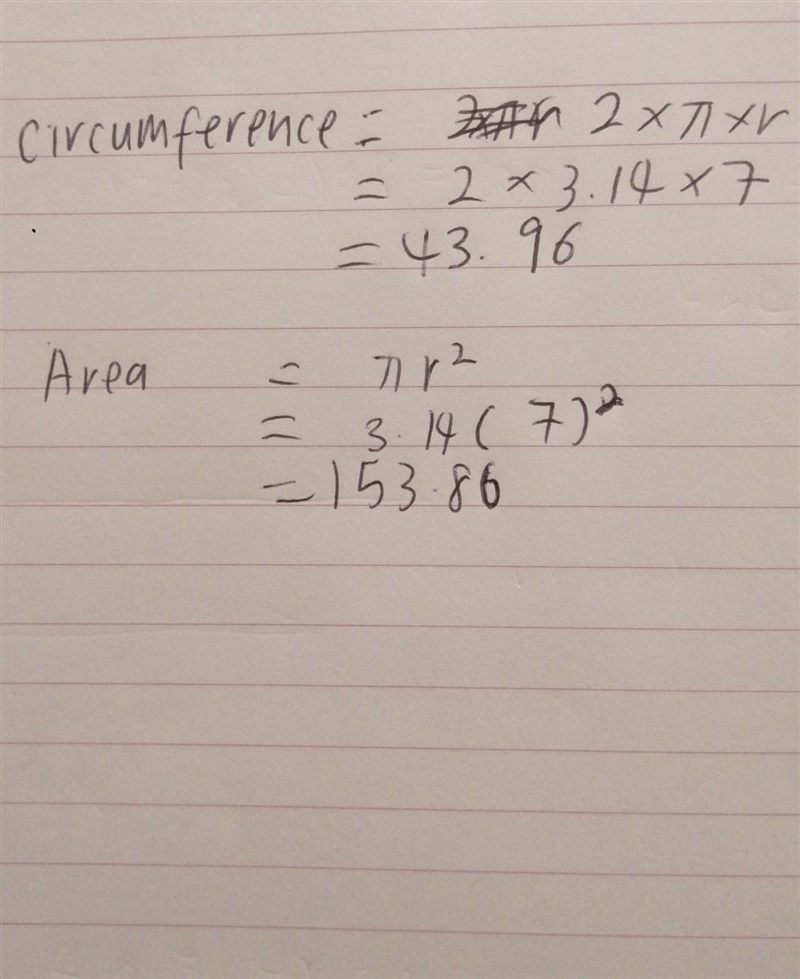 Circumference = 2 × π × r
= 2 × 3.14 × 7
= 43.96
Area = πr²
= 3.14( 7)²
= 153.86